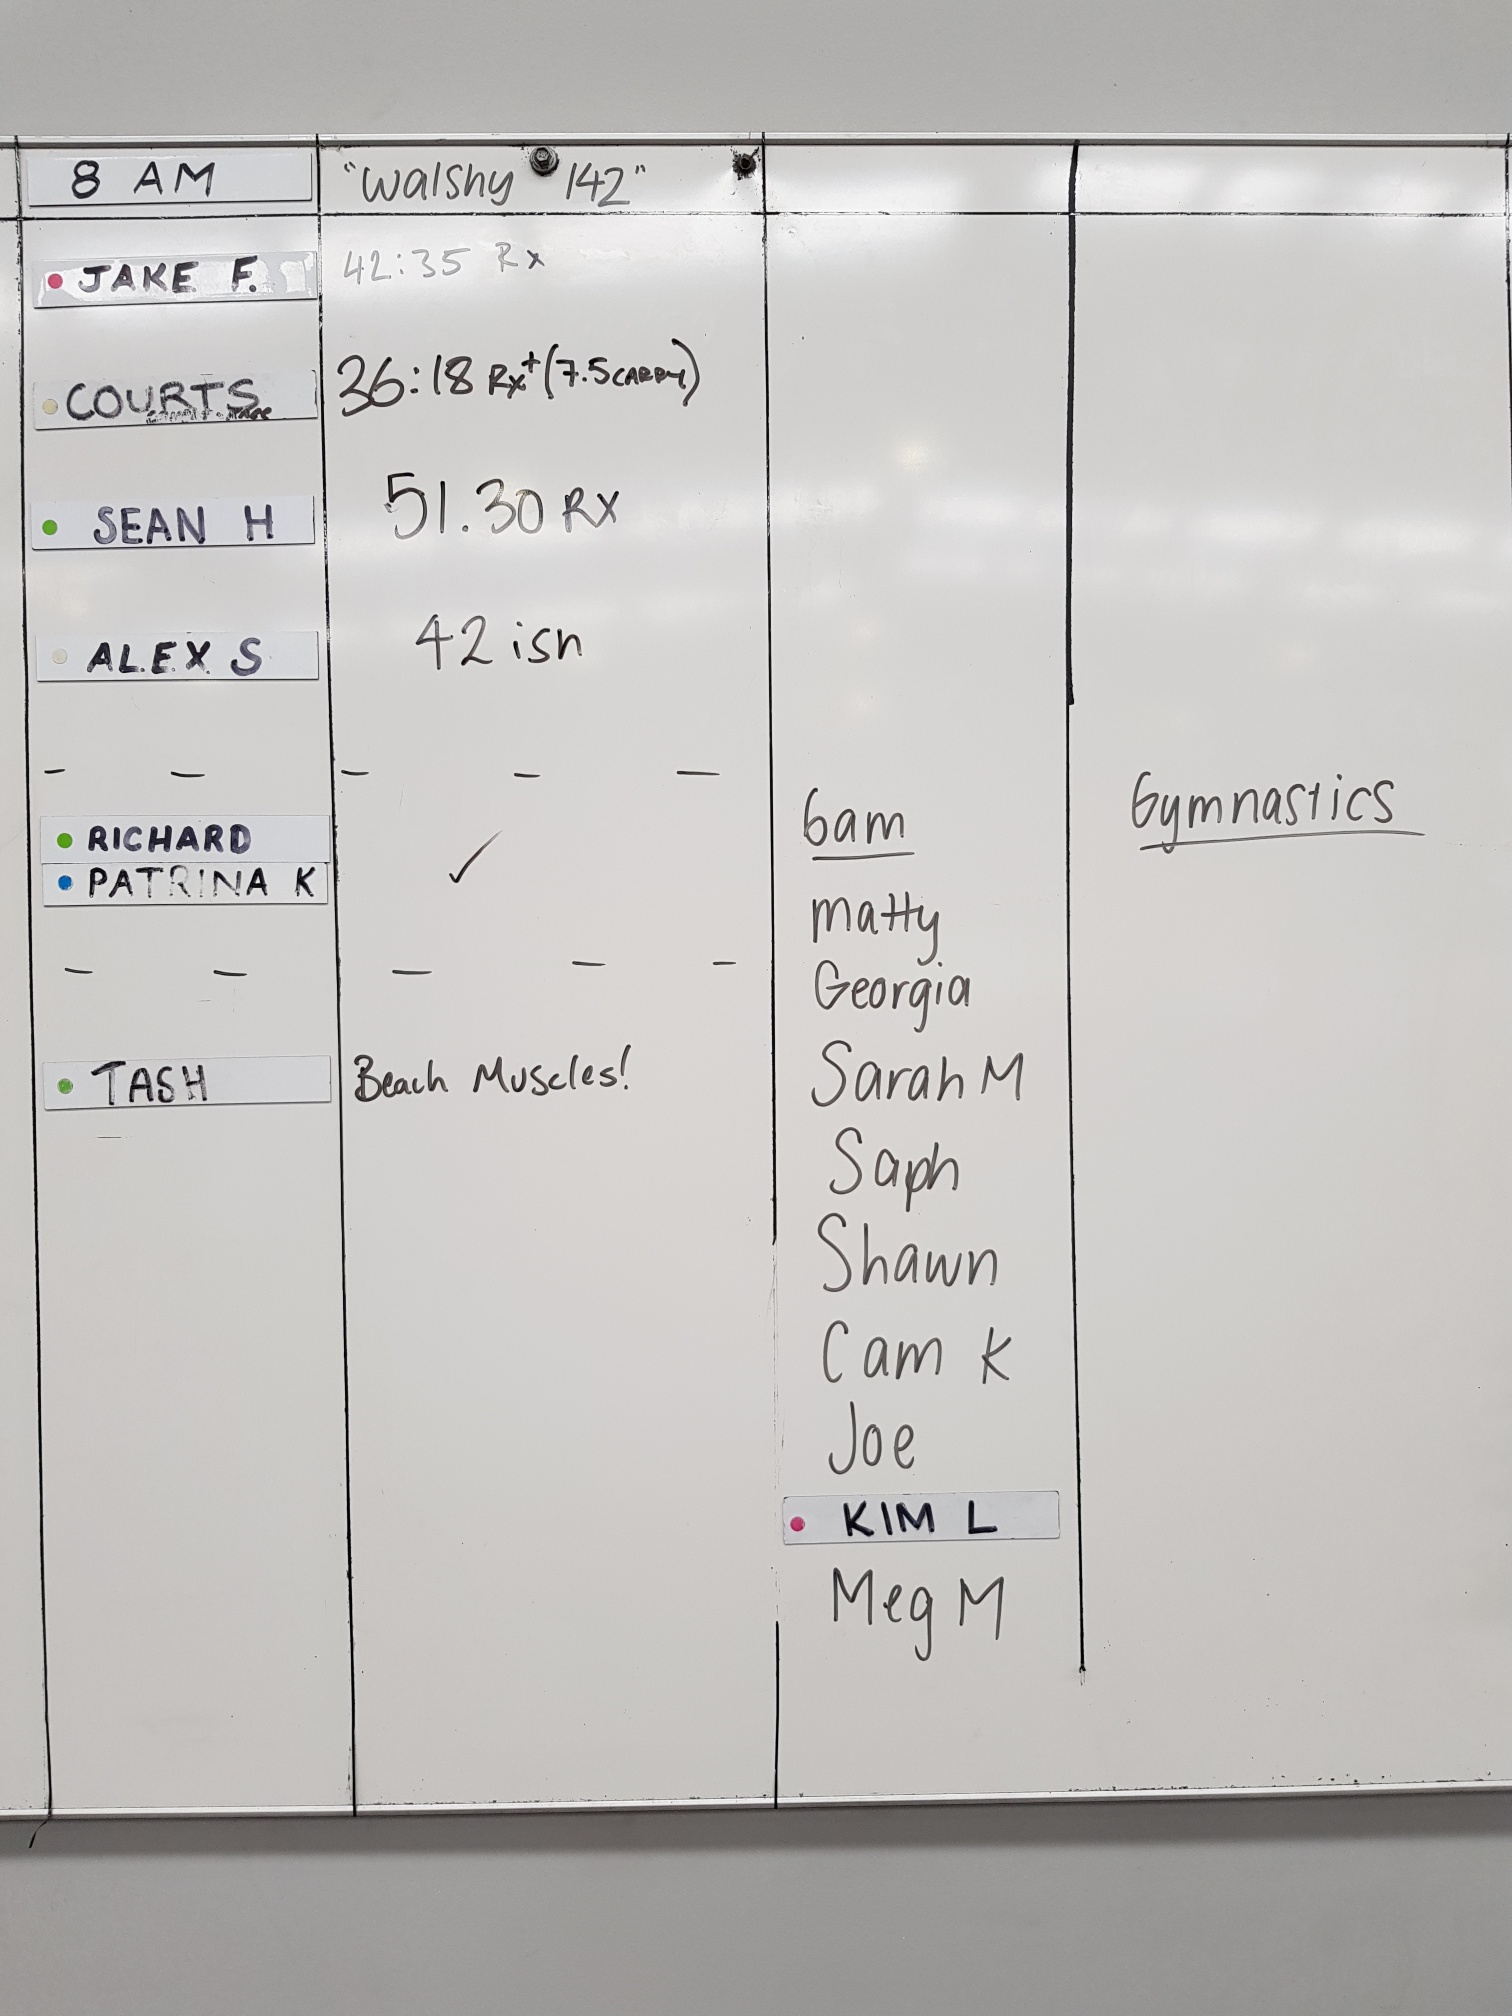 8 AM
"Walshy 142"
JAKE F.
42:35 Rx
COURTS
36:18 Rx+ (7.5 CARRY)
SEAN H
51.30 RX
ALEX S
42 ish
RICHARD
PATRINA K
✓
TASH
Beach Muscles!
6am
Matty
Georgia
Sarah M
Saph
Shawn
Cam K
Joe
KIM L
Meg M
Gymnastics